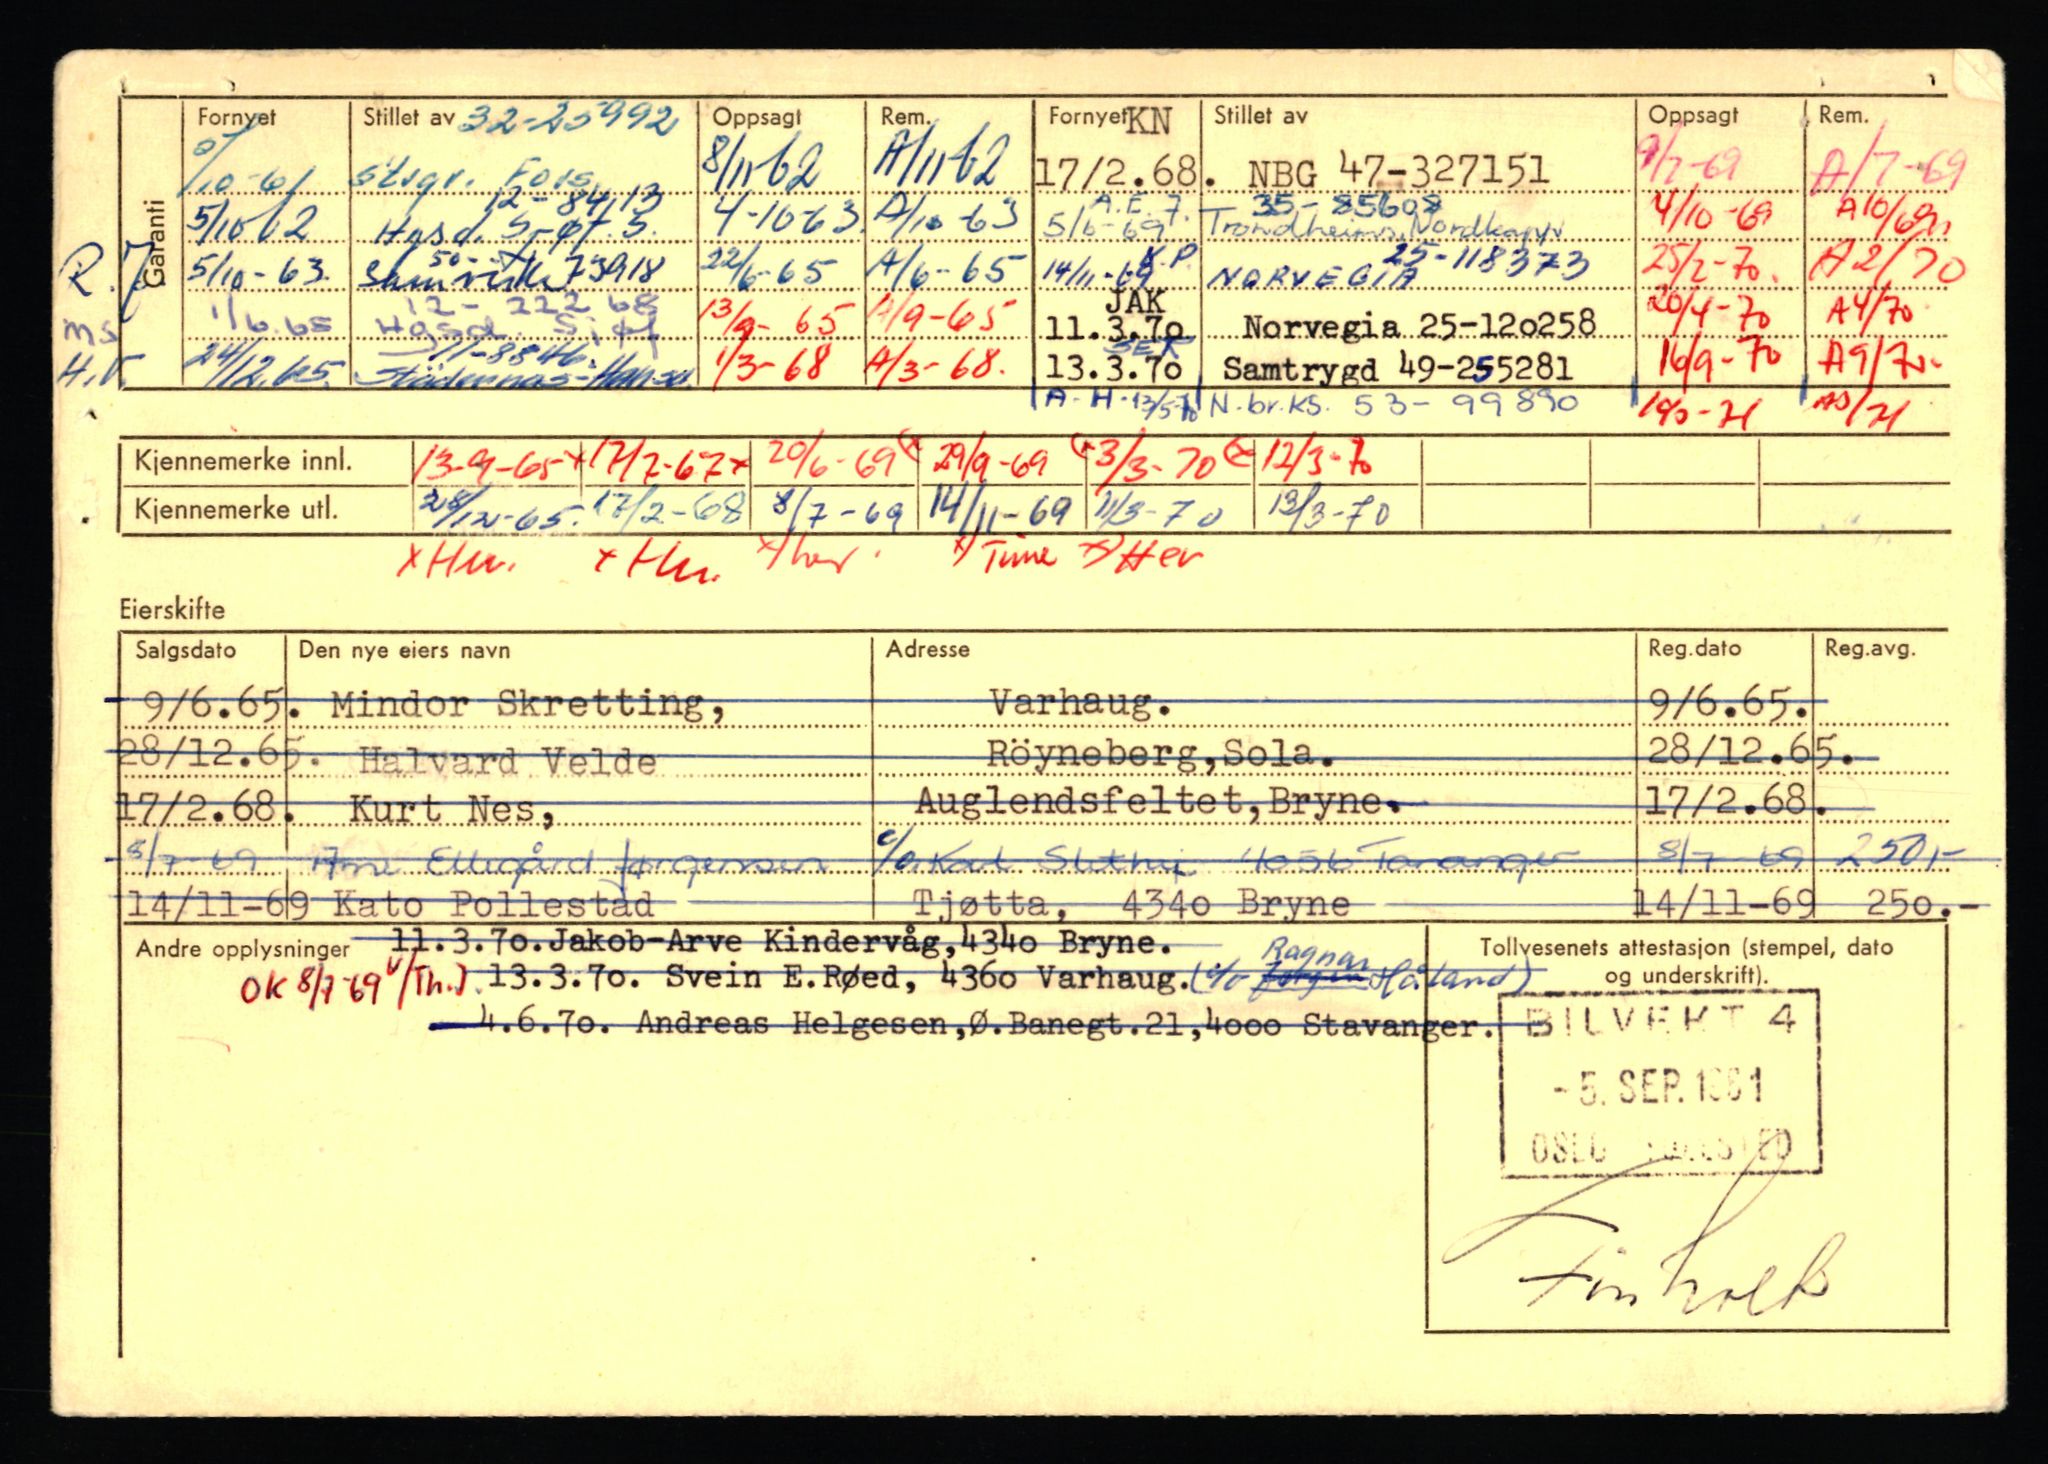 Fornyet Stillet av 32-25992 Oppsagt Rem. Fornyet KN Stillet av Oppsagt Rem.
Garanti
/10-61 Stvgr. Fors. 8/11-62 A/11-62 17/2.68. NBG 47-327151 9/7-69 A/7-69
12-84113 A.E.J. 35-85608
5/10 62 Hgsd. Sjøf. S. 4-10-63. A/10-63 5/6-69 Trondheims, Nordkapp 4/10-69 A10/69
R.J 50-73918 K.P. 25-118373
5/10-63. Samvirke 22/6-65 A/6-65 14/11-69 NORVEGIA 25/2-70. A2/70
12-22268 JAK
MS 1/6.65 Hgsd. Sjøf 13/9-65 A/9-65 11.3.70 Norvegia 25-120258 20/4-70 A4/70
71-8846. SER
H.V. 24/12.65. Städernas-Hansa 1/3-68 A/3-68. 13.3.70 Samtrygd 49-255281 16/9-70 A9/70.
A.H. 13/5-70 N.br.ks. 53-99890
Kjennemerke innl. 13-9-65x 17/7-67x 20/6-69(x 29/9-69 (x 3/3-70 (x 12/3-70
Kjennemerke utl. 28/12-65. 17/2-68 8/7-69 14/11-69 11/3-70 13/3-70
x Hv. x Hv. x) hev. x) Time x) Hev
Eierskifte
Salgsdato Den nye eiers navn Adresse Reg.dato Reg.avg.
9/6.65. Mindor Skretting, Varhaug. 9/6.65.
28/12.65. Halvard Velde Röyneberg,Sola. 28/12.65.
17/2.68. Kurt Nes, Auglendsfeltet,Bryne. 17/2.68.
8/7-69 Arne Ellegård Jørgensen c/o. 4056 Tananger 8/7-69 250,-
14/11-69 Kato Pollestad Tjøtta, 4340 Bryne 14/11-69 250.-
Andre opplysninger 11.3.70.Jakob-Arve Kindervåg,4340 Bryne.
OK 8/7-69 /Th.). 13.3.70. Svein E.Røed, 4360 Varhaug.(c/o Jørgen Ragnar Håland)
4.6.70. Andreas Helgesen,Ø.Banegt.21,4000 Stavanger.
Tollvesenets attestasjon (stempel, dato
og underskrift).
BILVEKT 4
-5. SEP. 1961
OSLO TOLLSTED